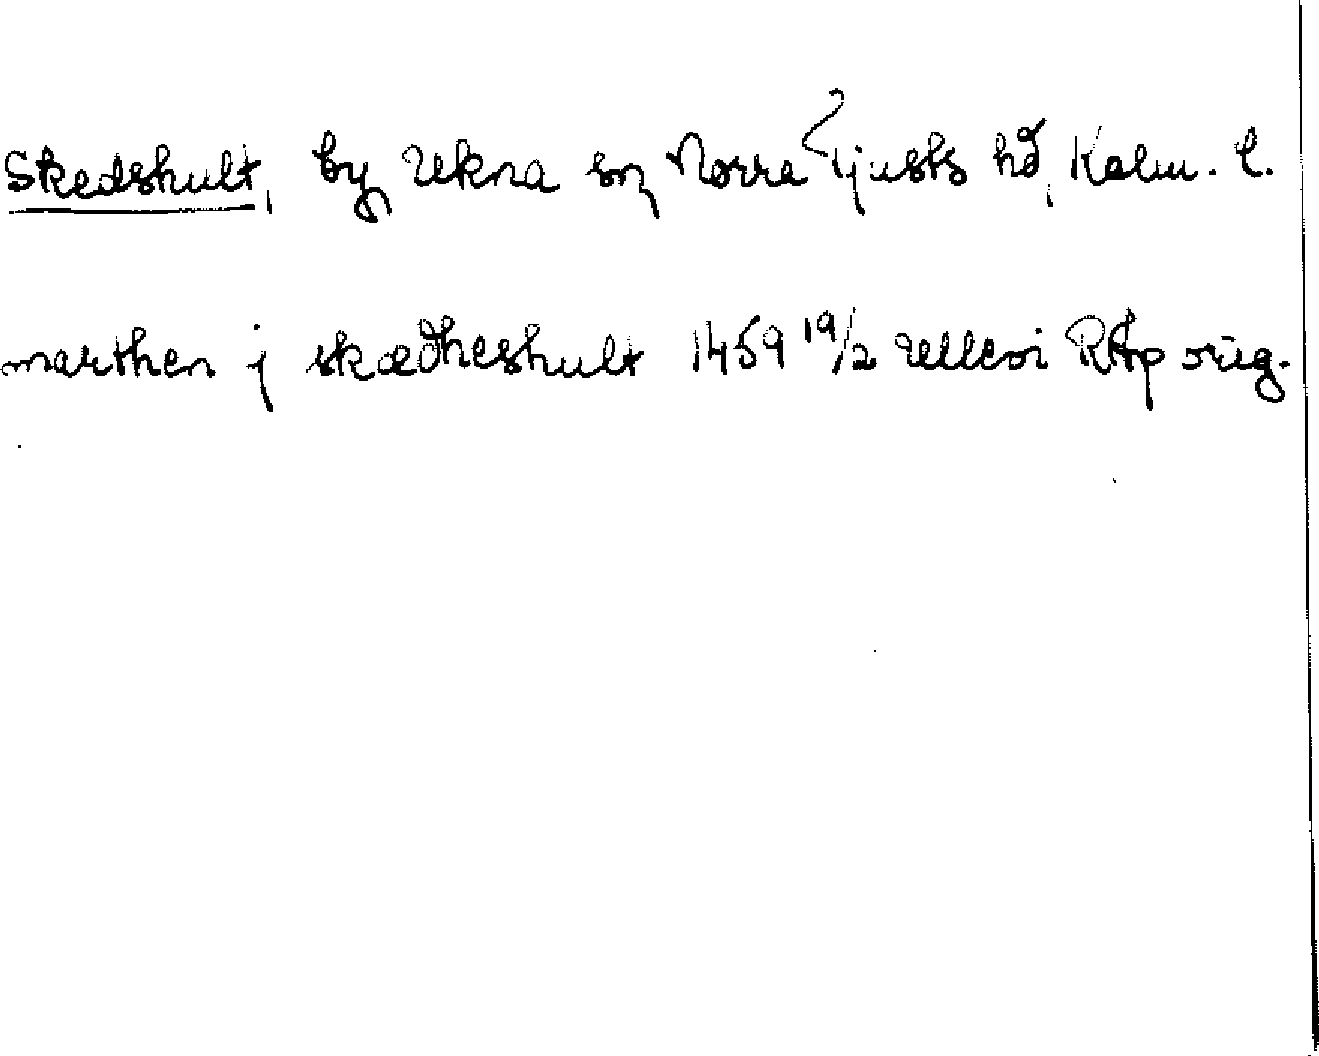 Skedshult, by Ukna sn, Norra Tjusts hd, Kalm. l.
marthen j skædheshult 1459 19/2 Ullevi RAp orig.